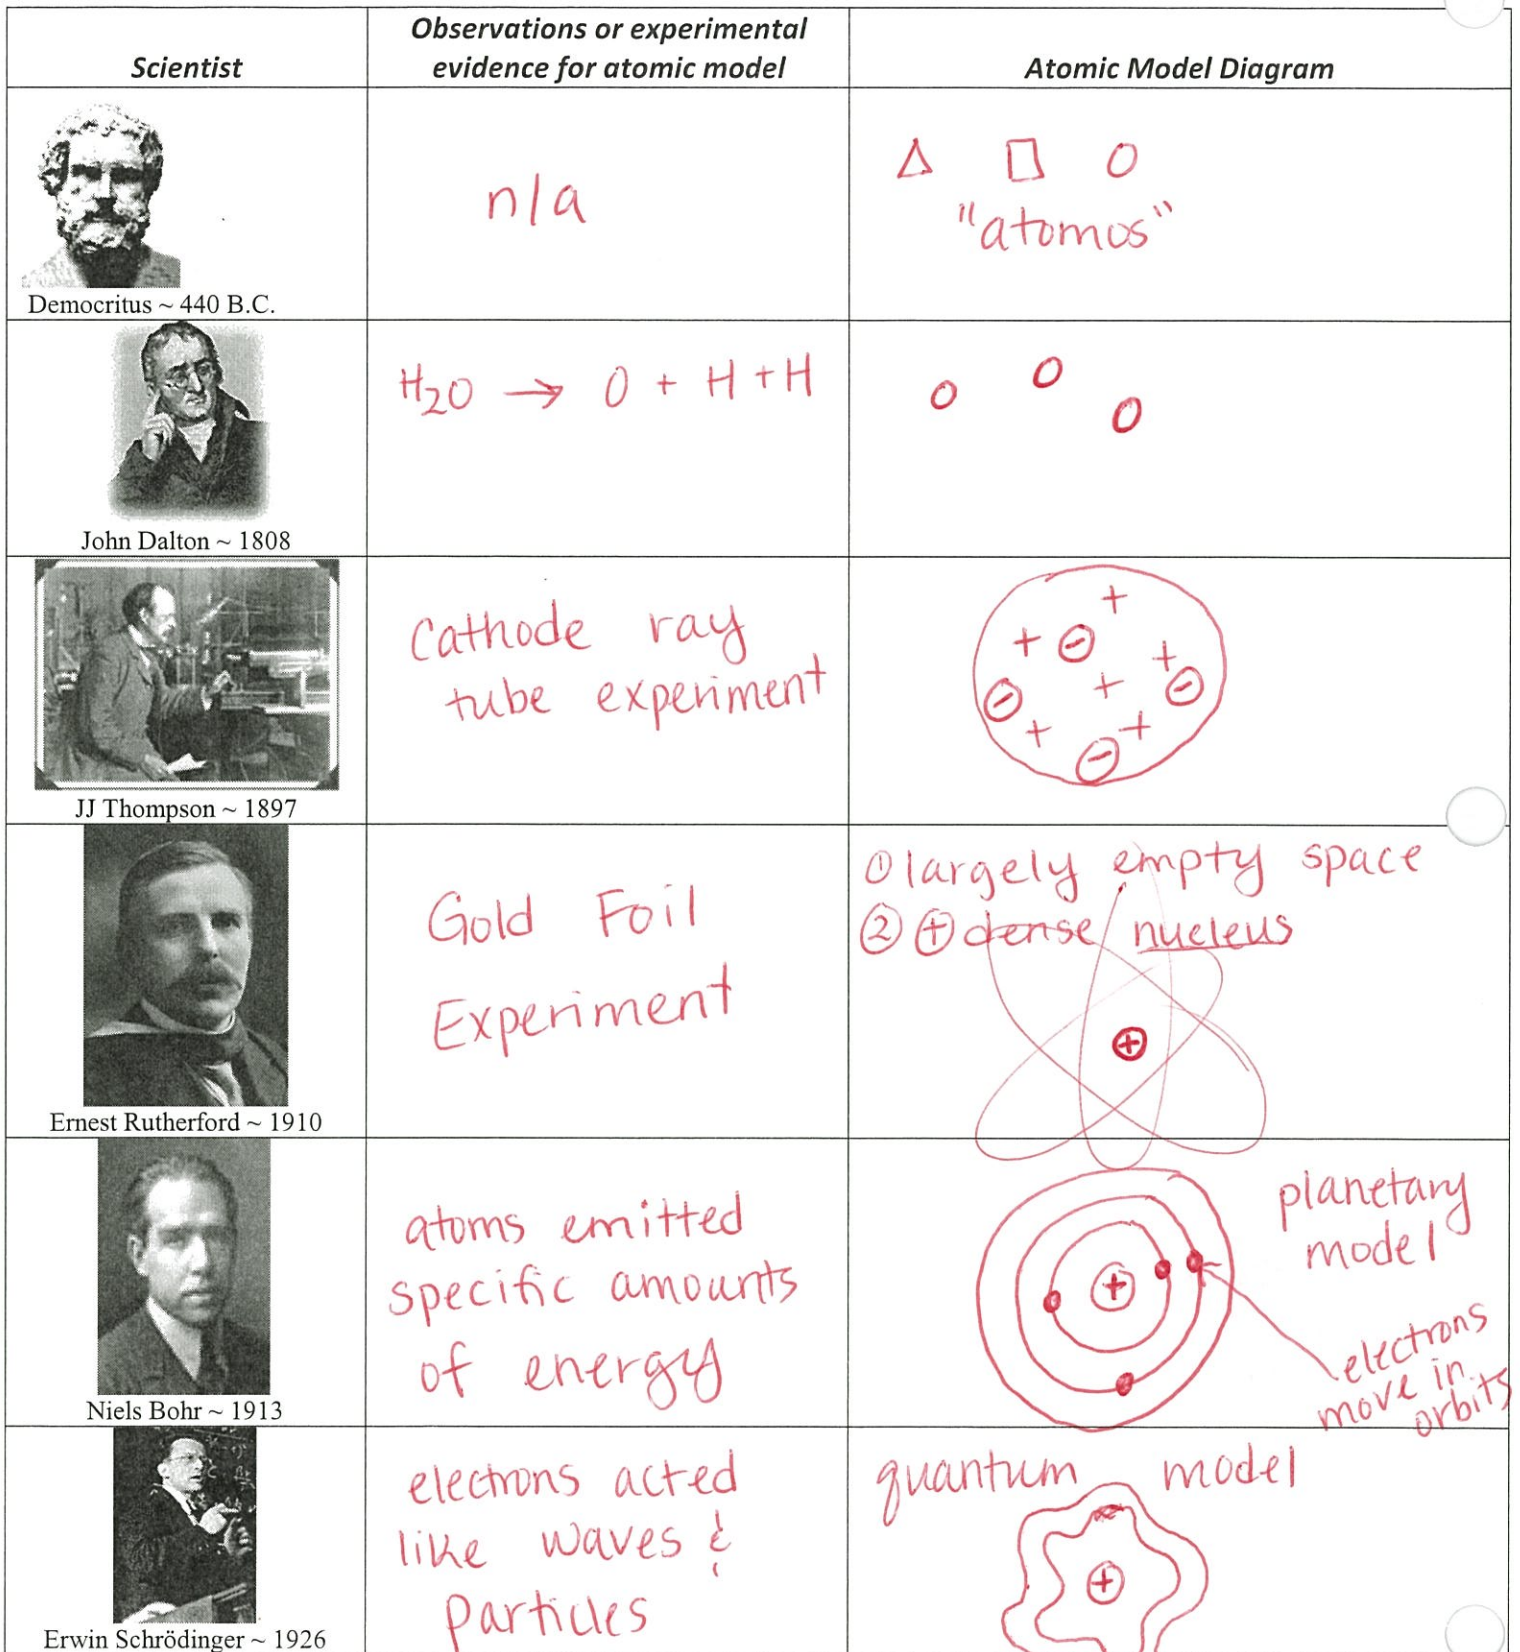 Scientist
Observations or experimental
evidence for atomic model
Atomic Model Diagram
Democritus ~ 440 B.C.
n/a
"atomos"
John Dalton ~ 1808
H2O → O + H + H
JJ Thompson ~ 1897
Cathode ray
tube experiment
+
+ -
+
- + -
+ +
-
Ernest Rutherford ~ 1910
Gold Foil
Experiment
① largely empty space
② ⊕ dense nucleus
+
Niels Bohr ~ 1913
atoms emitted
specific amounts
of energy
planetary
model
+
electrons
move in
orbits
Erwin Schrödinger ~ 1926
electrons acted
like waves &
particles
quantum model
+